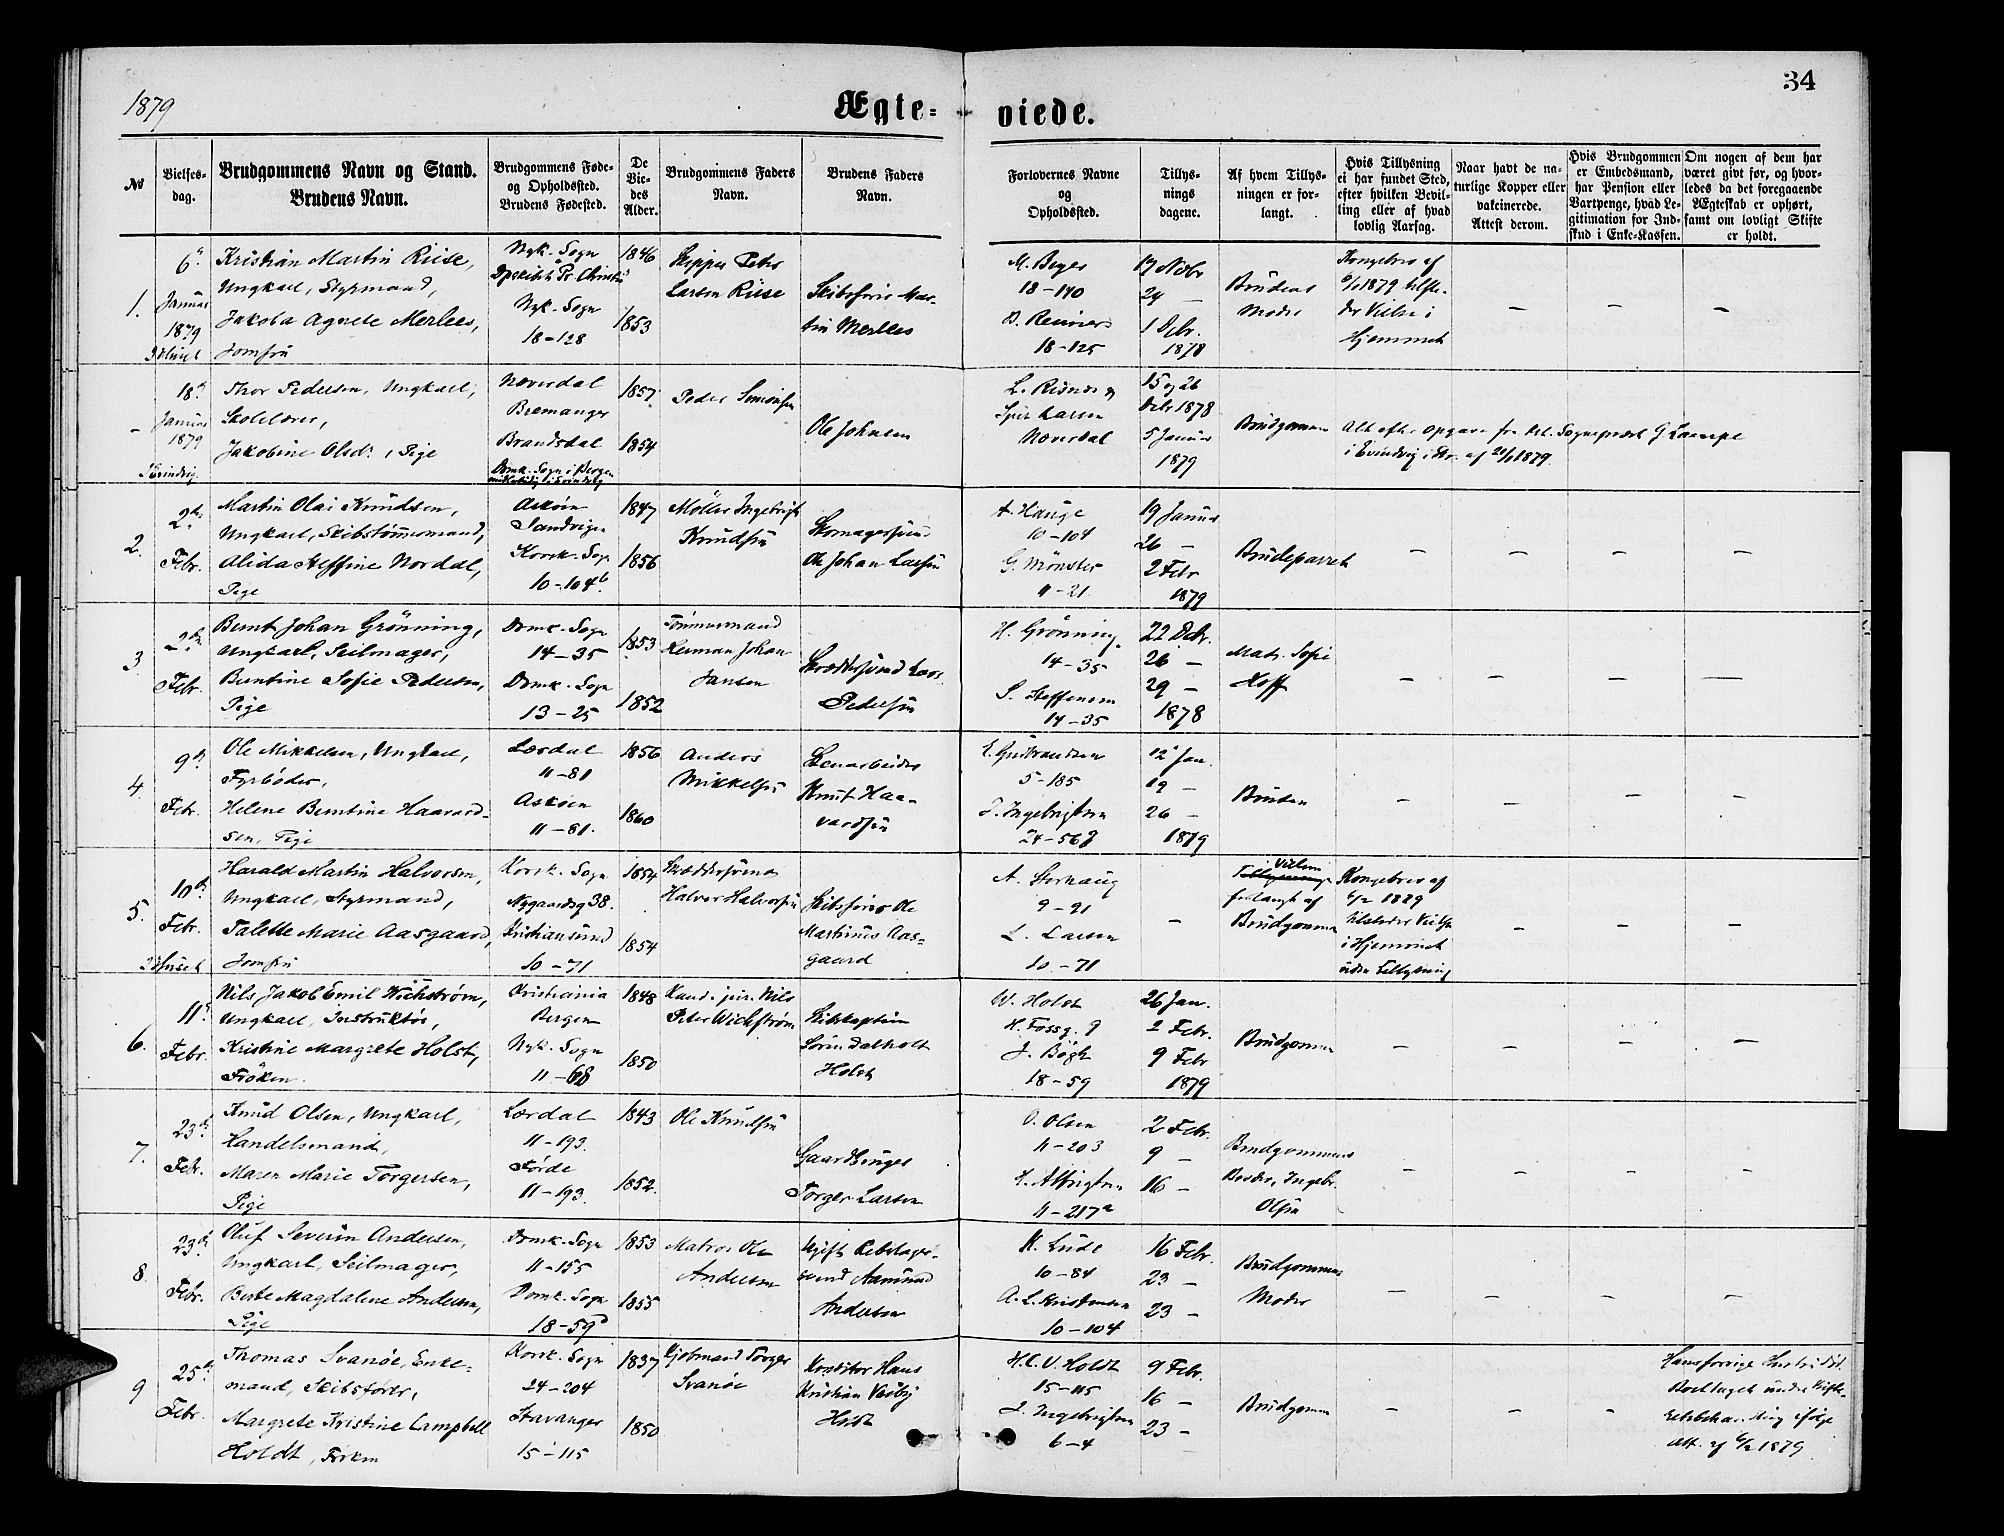 1879
Ægte-
viede.
34
No
Vielses-
dag.
Brudgommens Navn og Stand.
Brudens Navn.
Brudgommens Føde-
og Opholdssted.
Brudens Fødested.
De
Vie-
des
Alder.
Brudgommens Faders
Navn.
Brudens Faders
Navn.
Forlovernes Navne
og
Opholdssted.
Tillys-
nings
dagene.
Af hvem Tillys-
ningen er for-
langt.
Hvis Tillysning
ei har fundet Sted,
efter hvilken Bevil-
ling eller af hvad
lovlig Aarsag.
Naar havt de na-
turlige Kopper eller
vakcinerede.
Attest derom.
Hvis Brudgommen
er Embedsmand,
har Pension eller
Vartpenge, hvad Le-
gitimation for Ind-
skud i Enke-Kassen.
Om nogen af dem har
været givt før, og hvor-
ledes da det foregaaende
Ægteskab er ophørt,
samt om lovligt Skifte
er holdt.
1.
6te
Januar
1879
I Huset
Kristian Martin Riise,
Ungkarl, Styrmand,
Jakoba Agnete Merlees,
Jomfru
Nyk. Sogn
Nyk. Sogn
18-128
1846
1853
Skipper Peter
Larsen Riise
Skibsfører Mar-
tin Merlees
M. Beyer
18-140
D. Reimers
18-125
17 Novbr
24 —
1 Dcbr.
1878
Brudens
Moder
Kongebrev af
6/1 1879 tilste-
der Vielse i
Hjemmet
—
—
—
-
18de
Januar
1879
I Evindvig
Thor Pedersen, Ungkarl,
Skolelærer,
Jakobine Olsdr, Pige
Næverdal
Bremanger
Brandsdal
Domk. Sogn i Bergen
1857
1854
Peder Simonsen
Ole Johnsen
Larsen
Næverdal
15 og 26
Dcbr 1878
5 Januar
1879
Brudgommen
Alt efter Opgave fra Sognepræst G Lampe
i Evindvig i Skr. af 21/1 1879.
2.
2den
Febr.
Martin Olai Knudsen,
Ungkarl, Skibstømmermand,
Alida Steffine Nordal,
Pige
Askøen
Sandvigen
Korsk. Sogn
10-104b.
1847
1856
Møller Ingebrigt
Knudsen
Skomagersvend
Ole Johan Larsen
A. Hauge
10-104
G. Mønster
11-21
19 Januar
26 —
2 Febr
1879
Brudeparret
—
—
—
—
3
2den
Febr.
Bernt Johan Grönning,
Ungkarl, Seilmager,
Berntine Sofie Pedersen,
Pige
Domk. Sogn
14-35
Domk. Sogn
13-25
1853
1852
Tømmermand
Herman Johan
Jansen
Skræddersvend Lars
Pedersen
H. Grönning
14-35
S. Steffensen
14-35
22 Dcbr.
26 —
29 —
1878
Matr. Sofie
Hoff
—
—
—
—
4
9de
Febr.
Ole Mikkelsen, Ungkarl,
Fyrbøder,
Helene Berntine Haavard-
sen, Pige
Lærdal
11-81
Askøen
11-81.
1856
1860
Anders
Mikkelsen
Stenarbeider
Knut Haa-
vardsen
E. Gudbrandsen
5-185
I. Ingebrigtsen
24-567
12 Jan.
19 —
26 —
1879
Bruden
—
—
—
—
5.
10de
Febr.
I Huset
Harald Martin Halvorsen,
Ungkarl, Styrmand,
Talette Marie Aasgaard,
Jomfru
Korsk. Sogn
Nygaardsg 38.
Kristiansund
10-71
1854
1854
Skræddersvend
Halvor Halvorsen
Skibsfører Ole
Martinus Aas-
gaard
A. Storhaug
9-91
L. Larsen
10-71
—
Vielsen
forlangt af
Brudgommen
Kongebrev af
6/2 1879
tilsteder Vielse
i Hjemmet
uden Tillysning
—
—
—
6.
11te
Febr.
Nils Jakob Emil Wichstrøm,
Ungkarl, Instruktør,
Kristine Margrete Holst,
Frøken.
Kristiania
Bergen
Nyk. Sogn
11-68
1848
1850
Kand. jur. Nils
Peter Wichstrøm
Skibskaptein
Søren Dalholt
Holst
W. Holst
H. Fossg. 9
J. Bøgh
18-59
26 Jan.
2 Febr.
9 Febr
1879
Brudgommen
—
—
—
—
7.
23de
Febr.
Knud Olsen, Ungkarl,
Handelsmand,
Maren Marie Torgersen,
Pige
Lærdal
11-193.
Førde
11-193.
1843
1852.
Ole Knudsen
Gaardbruger
Torger Larsen
O. Olsen
11-203
K. Albrigtsen
11-217a
2 Febr.
9 —
16 —
Brudgommens
Broder, Ingebr.
Olsen
—
—
—
—
8
23de
Febr.
Oluf Severin Andersen,
Ungkarl, Seilmager,
Berte Magdalene Andersen,
Pige
Domk. Sogn
11-155
Domk. Sogn
18-59
1853
1855
Matros Ole
Andersen
Ugift Rebslager-
svend Aamund
Andersen
K. Lude
10-84
A. L. Kristensen
10-104
16 Febr.
23 —
23 —
Brudgommens
Moder
—
—
—
—
9
25de
Febr.
Thomas Svanøe, Enke-
mand, Skibsfører,
Margrete Kristine Campbell
Holdt, Frøken
Korsk. Sogn
24-204
Stavanger
15-115
1837
1850
Kjøbmand Torger
Svanøe
Konditor Hans
Kristian
Holdt
H. C. V. Holdt
15-115
I. Ingebrigtsen
6-4
9 Febr.
16 —
23 —
Brudgommen
—
—
—
Hans forrige Hustru død.
Boet taget under Skifte-
rettsbehandling ifølge
Att. af 6/2 1879